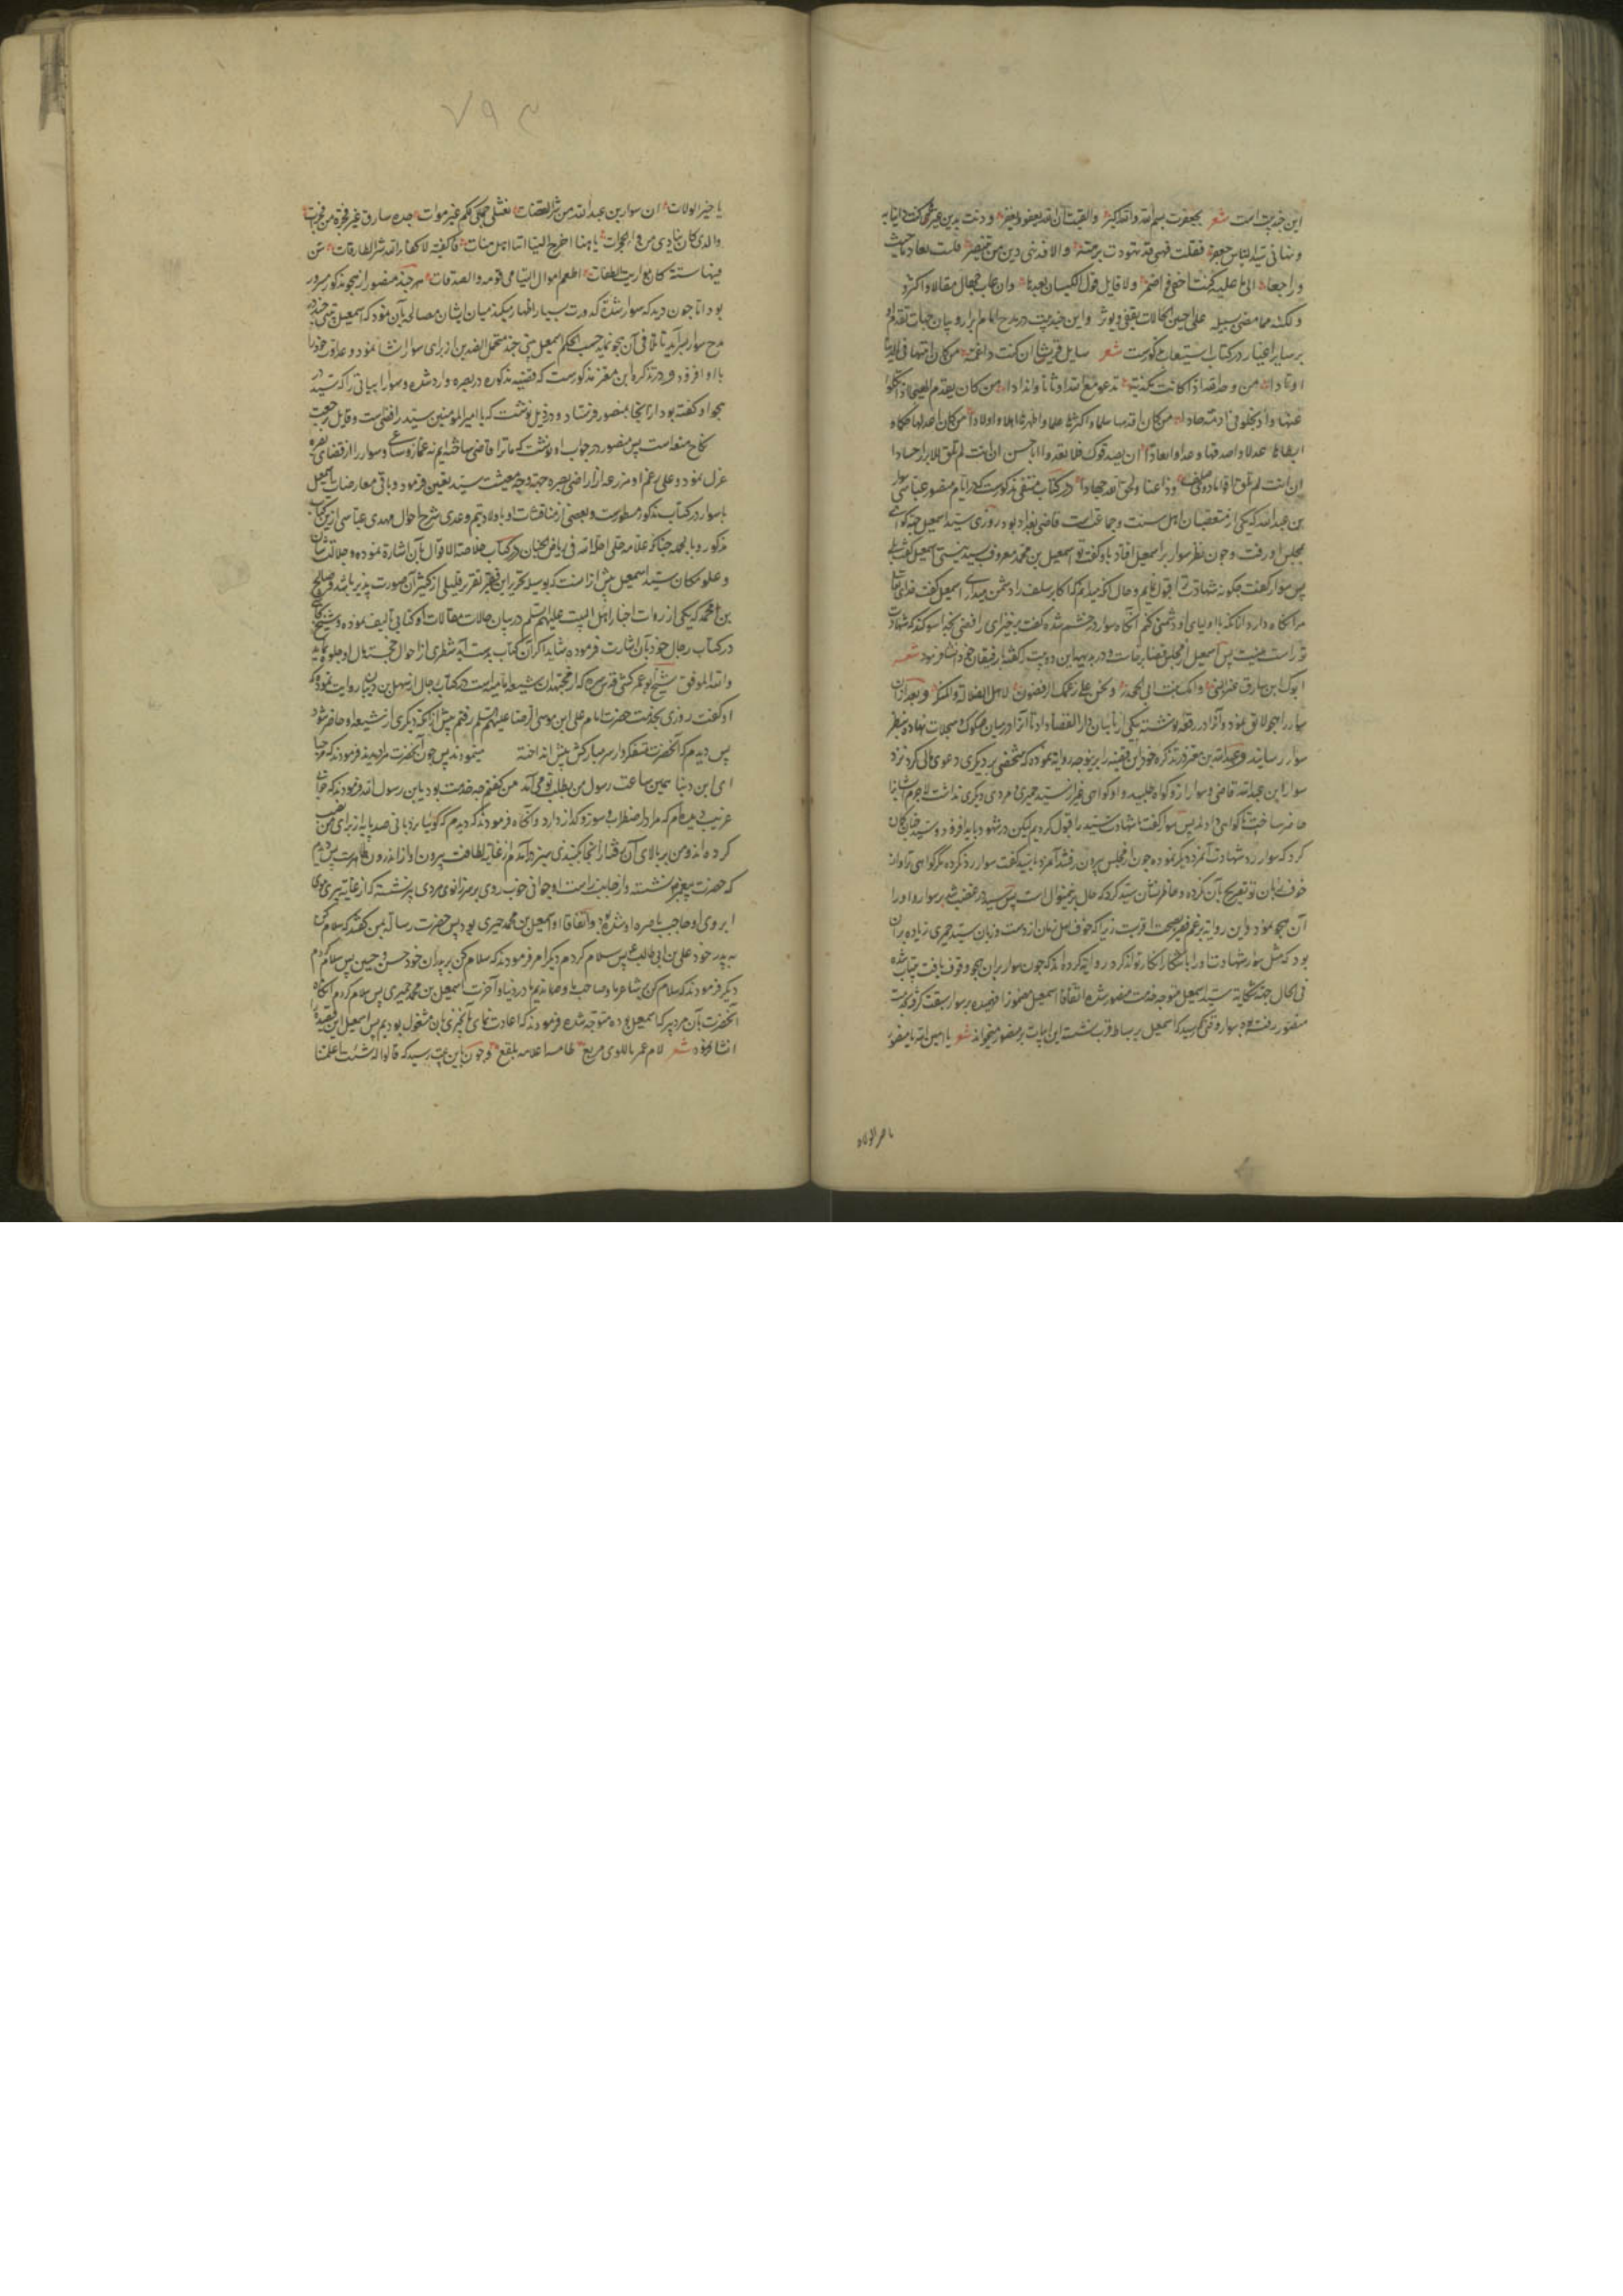 این چند بیت است شعر تجعفرت بسم الله والله اکبر وایقنت ان الله یعفو ویغفر ودنت بدین غیر ما کنت داینا به
ونهانی سید الناس جعفر فقلت فهبنی قد تهودت برهة والا فدینی دین من یتنصر فلست بعاد ما حییت
وراجعا الی ما علیه کنت اخفی واضمر ولا قایل قول لکیسان بعدها وان عاب جهال مقالا واکثروا
ولکنه مما مضی سبیله علی احسن الحالات یقفی ویوثر واین چند بیت در مدح امام ابرار وبیان جهات تقدم او
بر سایر اخیار در کتاب استیعاب مذکورست شعر سایل قریشا ان کنت ذا عمه من کان اثبتها فی الدین
اوتادا من وحد الله اذ کانت مکذبة تدعو مع الله اوثانا واندادا من کان یقدم الهیجا اذ نکلوا
عنها وان بخلوا فی ازمة جادا من کان اقدمها سلما واکثرها علما واطهرها اهلا واولادا من کان اعدلها حکما
ابسطها عدلا واصدقها وعدا وابعادا ان یصدقوک فلا یعدوا ابا حسن ان انت لم تلق للابرار حسادا
ان انت لم تلق اقواما ذوی صلف وذا عناد ولحق الله جحادا در کتاب منتقی مذکورست که در ایام منصور عباسی سوار
بن عبد الله که یکی از متعصبان اهل سنت وجماعت است قاضی بغداد بود روزی سید اسمعیل جهة گواهی
بمجلس او رفت وچون نظر سوار بر اسمعیل افتاد باو گفت تو اسمعیل بن محمد معروف بسید نیستی اسمعیل گفت بلی
پس سوار گفت چگونه شهادت ترا قبول نمایم وحال آنکه میدانم که اکابر سلف را دشمن میداری اسمعیل گفت خدای تعالی
مرا نگاه دارد از آنکه با اولیای او دشمنی کنم آنگاه سوار در خشم شده گفت برخیز ای رافضی بخدا سوگند که شهادت
تو راست نیست پس اسمعیل از مجلس قضا برخاست ودر بدیهه این دو بیت را گفته با رفیقان خود انشا نمود شعر
ابوک ابن سارق عنز النبی وامک بنت ابی الجحدر ونحن علی رغمک الرافضون لاهل الضلالة والمنکر وبعد از آن
سوار را هجو لایق نمود وآنرا در رقعه نوشته بیکی از نایبان دار القضا داد تا آنرا در میان صکوک وسجلات نهاده بنظر
سوار رسانید وعبد الله بن معتز در تذکره خود این قضیه را برینوجه روایة نموده که شخصی بر دیگری دعوی مالی کرد نزد
سوار ابن عبد الله قاضی وسوار ازو گواه طلبید واو گواهی غیر از سید حمیری ومردی دیگری نداشت لاجرم ایشانرا
حاضر ساخت تا گواهی دادند پس سوار گفت ما شهادت سید را قبول کردیم لیکن در شهود باید افزود وسید چنان گمان
کرد که سوار رد شهادت آنمرد دیگر نموده چون از مجلس بیرون رفتند آنمرد با سید گفت سوار رد نکرده مگر گواهی ترا واز
خوف زبان تو تصریح بآن نکرده وخاطر نشان سید کرد که حال برینمنوال است پس سید در غضب شد بر سوار واو را
آن هجو نمود واین روایة بزعم فقیر بصحت اقربست زیرا که خوف اهل زمان از دست وزبان سید حمیری زیاده بر آن
بود که مثل سوار شهادت او را بآشکارا انکار تواند کرد وروایة کرده اند که چون سوار بر آن هجو وقوف یافت بیتاب شده
فی الحال جهة شکایة سید اسمعیل متوجه خدمت منصور شد اتفاقا اسمعیل مضمونرا فهمیده بر سوار سبقت گرفته بخدمت
منصور رفته بود سوار وقتی رسید که اسمعیل بر بساط قرب نشسته این ابیات بر منصور میخواند شعر یا امین الله یا منصور
یا خیر الولاة
یا خیر الولات ان سوار بن عبد الله من شر القضات نعثلی جملی لکم غیر موات جده سارق عنز فجرة من فجرات
والذی کان ینادی من وراء الحجرات یا هنا اخرج الینا اننا اهل هنات فاکفنه لا کفاه الله شر الطارقات سن
فینا سنة کانت مواریث الطغات اطعم اموال الیتامی قومه والصدقات هر چند منصور از هجو مذکور مسرور
بود اما چون دید که سوار شده کدورت بسیار اظهار میکند میان ایشان مصالحه بآن نمود که اسمعیل بیتی چند در
مدح سوار بسراید تا تلافی آن هجو نماید حسب الحکم اسمعیل بیتی چند محتمل الضدین از برای سوار انشا نمود وعداوت خود را
با او افزود ودر تذکره ابن معتز مذکورست که قضیه مذکوره در بصره وارد شده وسوار ابیاتی را که سید در
هجو او گفته بود از آنجا بمنصور فرستاد ودر ذیل نوشت که یا امیر المومنین سید رافضیست وقایل برجعت
نکاح متعه است پس منصور در جواب او نوشت که ما ترا قاضی ساخته ایم نه غماز وساعی وسوار را از قضای بصره
عزل نمود وعلی رغم او مزرعه از اراضی بصره جهة وجه معیشت سید تعیین فرمود وباقی معارضات اسمعیل
با سوار در کتاب مذکور مسطورست وبعضی از مناقشات او با اولاد تیم وعدی شرح احوال مهدی عباسی ازین کتاب
مذکور وبالجمله چنانکه علامه حلی احله الله فی ریاض الجنان در کتاب خلاصة الاقوال بآن اشارة نموده وجلالت شان
وعلو مکان سید اسمعیل بیش از آنست که بوسیله تحریر این فقیر تقریر قلیلی از کثیر آن صورت پذیر باشد وصالح
بن محمد که یکی از روات اخبار اهل البیت علیهم السلم در بیان حالات ومقالات او کتابی تالیف نموده وشیخ نجاشی
در کتاب رجال خود بآن اشارت فرموده شاید اگر آن کتاب بدست آید شطری از احوال خجسته مال او جلوه نماید
والله الموفق شیخ ابو عمر کشی قدس سره که از مجتهدان شیعه امامیه است در کتاب رجال از سهل بن ذبیان روایت نموده که
او گفت روزی بخدمت حضرت امام علی ابن موسی الرضا علیهم السلم رفتم پیش از آنکه دیگری از شیعه او حاضر شود
پس دیدم که آنحضرت متفکروار سر مبارکش بپیش انداخته میفرمودند پس چون آنحضرت مرا دیدند فرمودند که مرحبا
ای ابن ذبیان همین ساعت رسول من بطلب تو می آمد من گفتم چه خدمت بود یابن رسول الله فرمودند که خوابی
غریب دیده ام که مرا در اضطراب وسوز وگداز دارد وآنگاه فرمودند که دیدم که گوییا نردبانی صد پایه از برای من نصب
کرده اند ومن بر بالای آن رفتم از آنجا بگنبدی سبز در آمدم از غایة لطافت بیرون او از اندرون ظاهرست پس دیدم
که حضرت پیغمبر نشسته واز جانب راست او جوانی خوب روی بر سر زانوی مردی پیر نشسته که از غایة پیری موی
ابروی او حاجب باصره او شده بود واتفاقا او اسمعیل بن محمد حمیری بود پس حضرت رسالة بمن گفتند که سلام کن
به پدر خود علی بن ابی طالب پس سلام کردم دیگر امر فرمودند که سلام کن بر پدران خود حسن وحسین پس سلام کردم
دیگر فرمودند که سلام کن بشاعر ما وصاحب ما ومادح ما در دنیا وآخرت اسمعیل بن محمد حمیری پس سلام کردم آنگاه
آنحضرت بآن مرد پیر که اسمعیل بوده متوجه شده فرمودند که اعادت نمای آنچیزی بآن مشغول بودیم پس اسمعیل این قصیده
انشا فرمود شعر لام عمرو باللوی مربع طامسة اعلامه بلقع وچون باین بیت رسید که قالوا له لو شئت اعلمتنا